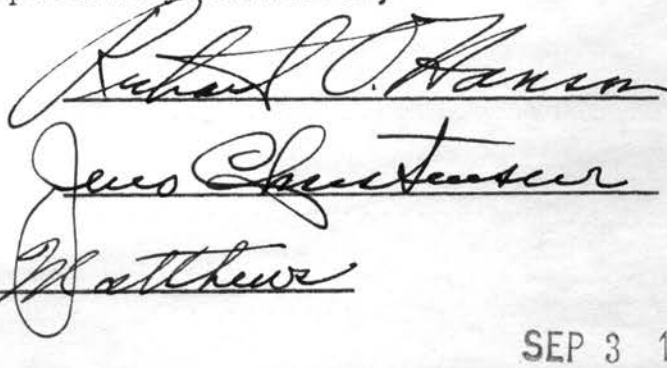 Richard O. Hanson
Jens Christensen
Matthews
SEP 3 1